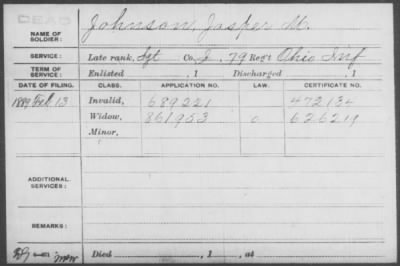 DEAD
NAME OF SOLDIER: Johnson, Jasper M.
SERVICE: Late rank, Sgt Co. , 79 Reg't Ohio Inf
TERM OF SERVICE: Enlisted , 1 Discharged , 1
DATE OF FILING. CLASS. APPLICATION NO. LAW. CERTIFICATE NO.
1889 Feb 13 Invalid, 689221 472134
Widow, 861953 626219
Minor,
ADDITIONAL SERVICES:
REMARKS:
Died , 1 , at